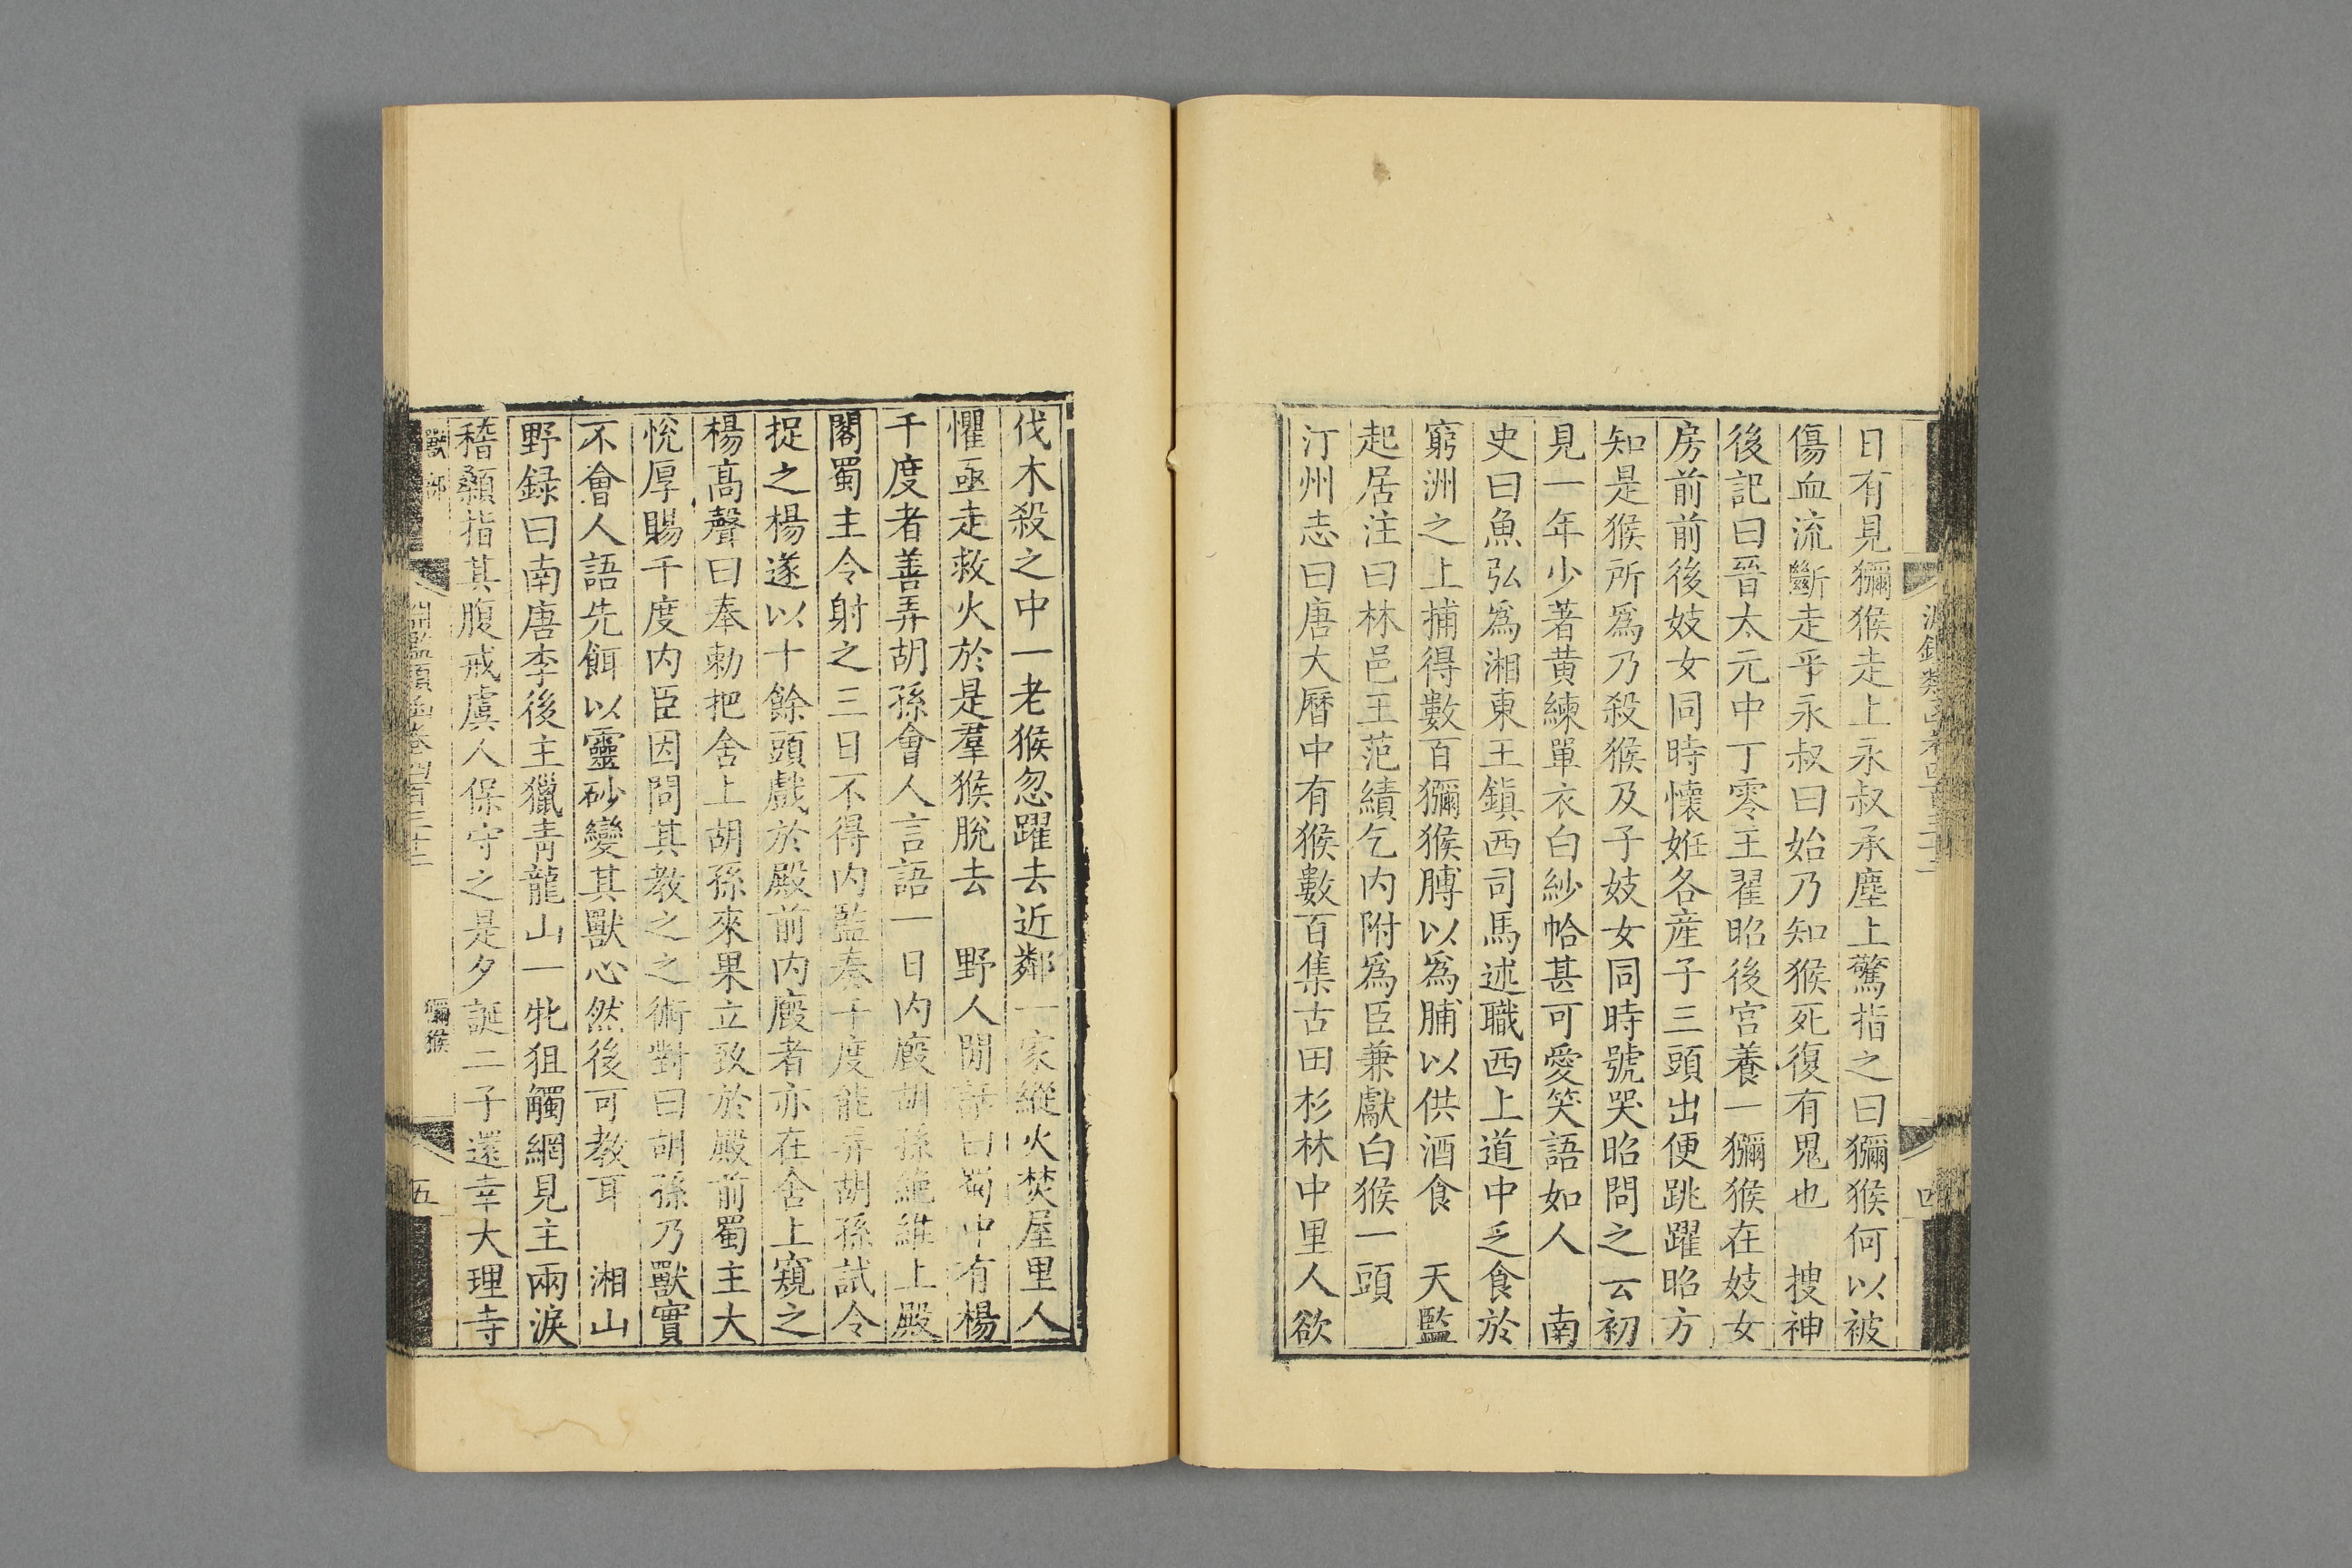 日有見獼猴走上永叔承塵上驚指之曰獼猴何以被
傷血流斷走乎永叔曰始乃知猴死復有鬼也　搜神
後記曰晉太元中丁零主翟昭後宮養一獼猴在妓女
房前前後妓女同時懷妊各産子三頭出便跳躍昭方
知是猴所爲乃殺猴及子妓女同時號哭昭問之云初
見一年少著黄練單衣白紗帢甚可愛笑語如人　南
史曰魚弘爲湘東王鎮西司馬述職西上道中乏食於
窮洲之上捕得數百獼猴膊以爲脯以供酒食　天監
起居注曰林邑王范績乞内附爲臣兼獻白猴一頭
汀州志曰唐大曆中有猴數百集古田杉林中里人欲
伐木殺之中一老猴忽躍去近鄰一家縱火焚屋里人
懼亟走救火於是羣猴脫去　野人閒話曰蜀中有楊
千度者善弄胡孫會人言語一日内廄胡孫絶維上殿
閣蜀主令射之三日不得内監奏千度能弄胡孫試令
捉之楊遂以十餘頭戲於殿前内廄者亦在舍上窺之
楊高聲曰奉勅把舍上胡孫來果立致於殿前蜀主大
悅厚賜千度内臣因問其教之之術對曰胡孫乃獸實
不會人語先餌以靈砂變其獸心然後可教耳　湘山
野録曰南唐李後主獵青龍山一牝狙觸網見主兩淚
稽顙指其腹戒虞人保守之是夕誕二子還幸大理寺
獸部
淵鑑類函卷四百三十二
獼猴
五